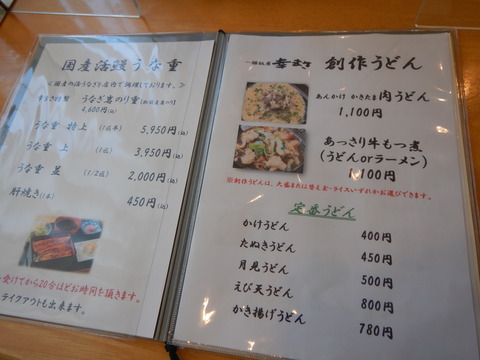 国産活鰻うな重
<国産の活うなぎを店内で調理しております。>
幸まさ特製 うなぎ恵のり重
4,600円(込)
うな重 特上 (1匹半) 5,950円(込)
うな重 上 (1匹) 3,950円(込)
うな重 並 (1/2匹) 2,000円(込)
肝焼き(1本) 450円(込)
受けてから20分ほどお時間を頂きます。
テイクアウトも出来ます。
創作うどん
あんかけ かきたま 肉うどん
1,100円
あっさり牛もつ煮
(うどんorラーメン)
1,100円
※創作うどんは、大盛または替え玉・ライスいずれかお選びできます。
定番うどん
かけうどん 400円
たぬきうどん 450円
月見うどん 500円
えび天うどん 800円
かき揚げうどん 780円